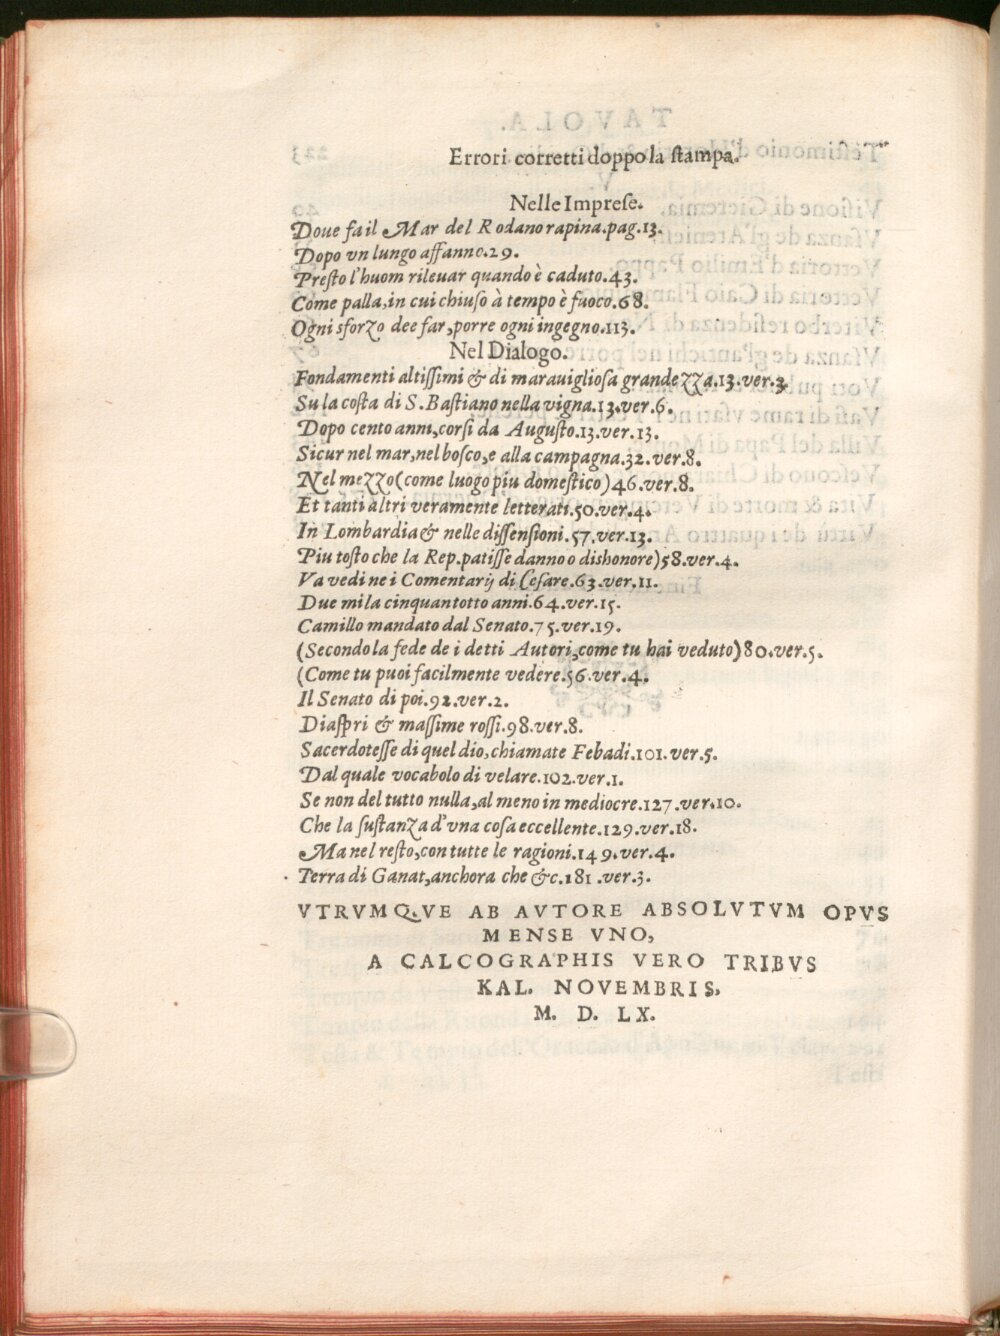 Errori corretti doppo la stampa.
Nelle Imprese.
Doue fa il Mar del Rodano rapina.pag.13.
Dopo vn lungo affanno.29.
Presto l'huom rileuar quando è caduto.43.
Come palla,in cui chiuso à tempo è fuoco.68.
Ogni sforzo dee far,porre ogni ingegno.113.
Nel Dialogo.
Fondamenti altissimi & di marauigliosa grandezza.13.ver.3.
Su la costa di S.Bastiano nella vigna.13.ver.6.
Dopo cento anni,corsi da Augusto.13.ver.13.
Sicur nel mar,nel bosco,e alla campagna.32.ver.8.
Nel mezzo(come luogo piu domestico)46.ver.8.
Et tanti altri veramente letterati.50.ver.4.
In Lombardia & nelle dissensioni.57.ver.13.
Piu tosto che la Rep.patisse danno o dishonore)58.ver.4.
Va vedi ne i Comentarij di Cesare.63.ver.11.
Due mila cinquantotto anni.64.ver.15.
Camillo mandato dal Senato.75.ver.19.
(Secondo la fede de i detti Autori,come tu hai veduto)80.ver.5.
(Come tu puoi facilmente vedere.56.ver.4.
Il Senato di poi.92.ver.2.
Diaspri & massime rossi.98.ver.8.
Sacerdotesse di quel dio,chiamate Febadi.101.ver.5.
Dal quale vocabolo di velare.102.ver.1.
Se non del tutto nulla,al meno in mediocre.127.ver.10.
Che la sustanza d'vna cosa eccellente.129.ver.18.
Ma nel resto,con tutte le ragioni.149.ver.4.
Terra di Ganat,anchora che &c.181.ver.3.
VTRVMQ.VE AB AVTORE ABSOLVTVM OPVS
MENSE VNO,
A CALCOGRAPHIS VERO TRIBVS
KAL. NOVEMBRIS,
M. D. LX.